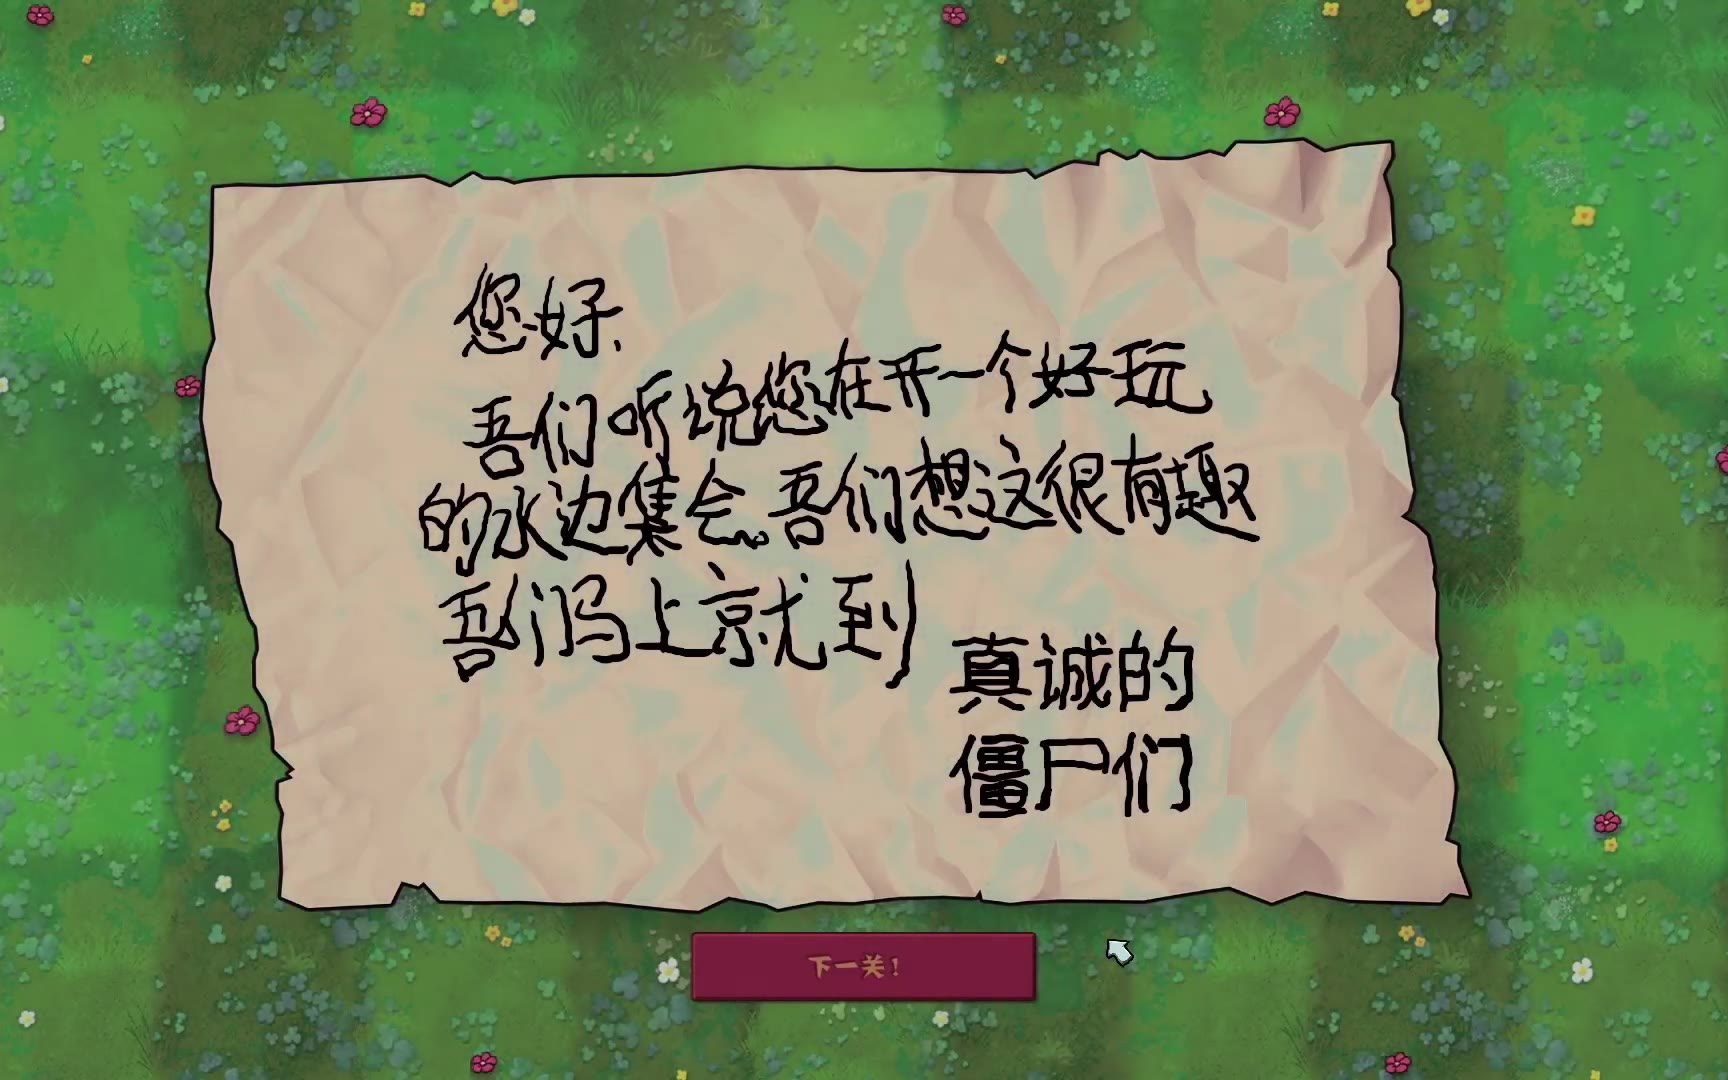 您好、
吾们听说您在开一个好玩
的水边集会。吾们想这很有趣
吾们冯上京尤到
真诚的
僵尸们
下一关！